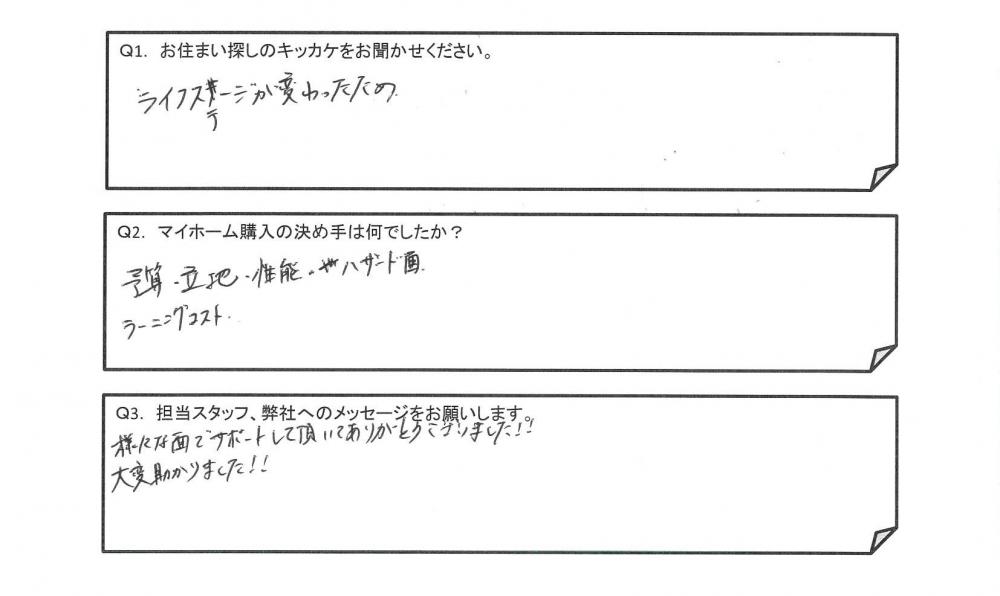 Q1. お住まい探しのキッカケをお聞かせください。
ライフステージが変わったため
Q2. マイホーム購入の決め手は何でしたか？
予算・立地・性能・ハザード面
ラーニングコスト.
Q3. 担当スタッフ、弊社へのメッセージをお願いします。
様々な面でサポートして頂いてありがとうございました!!
大変助かりました!!